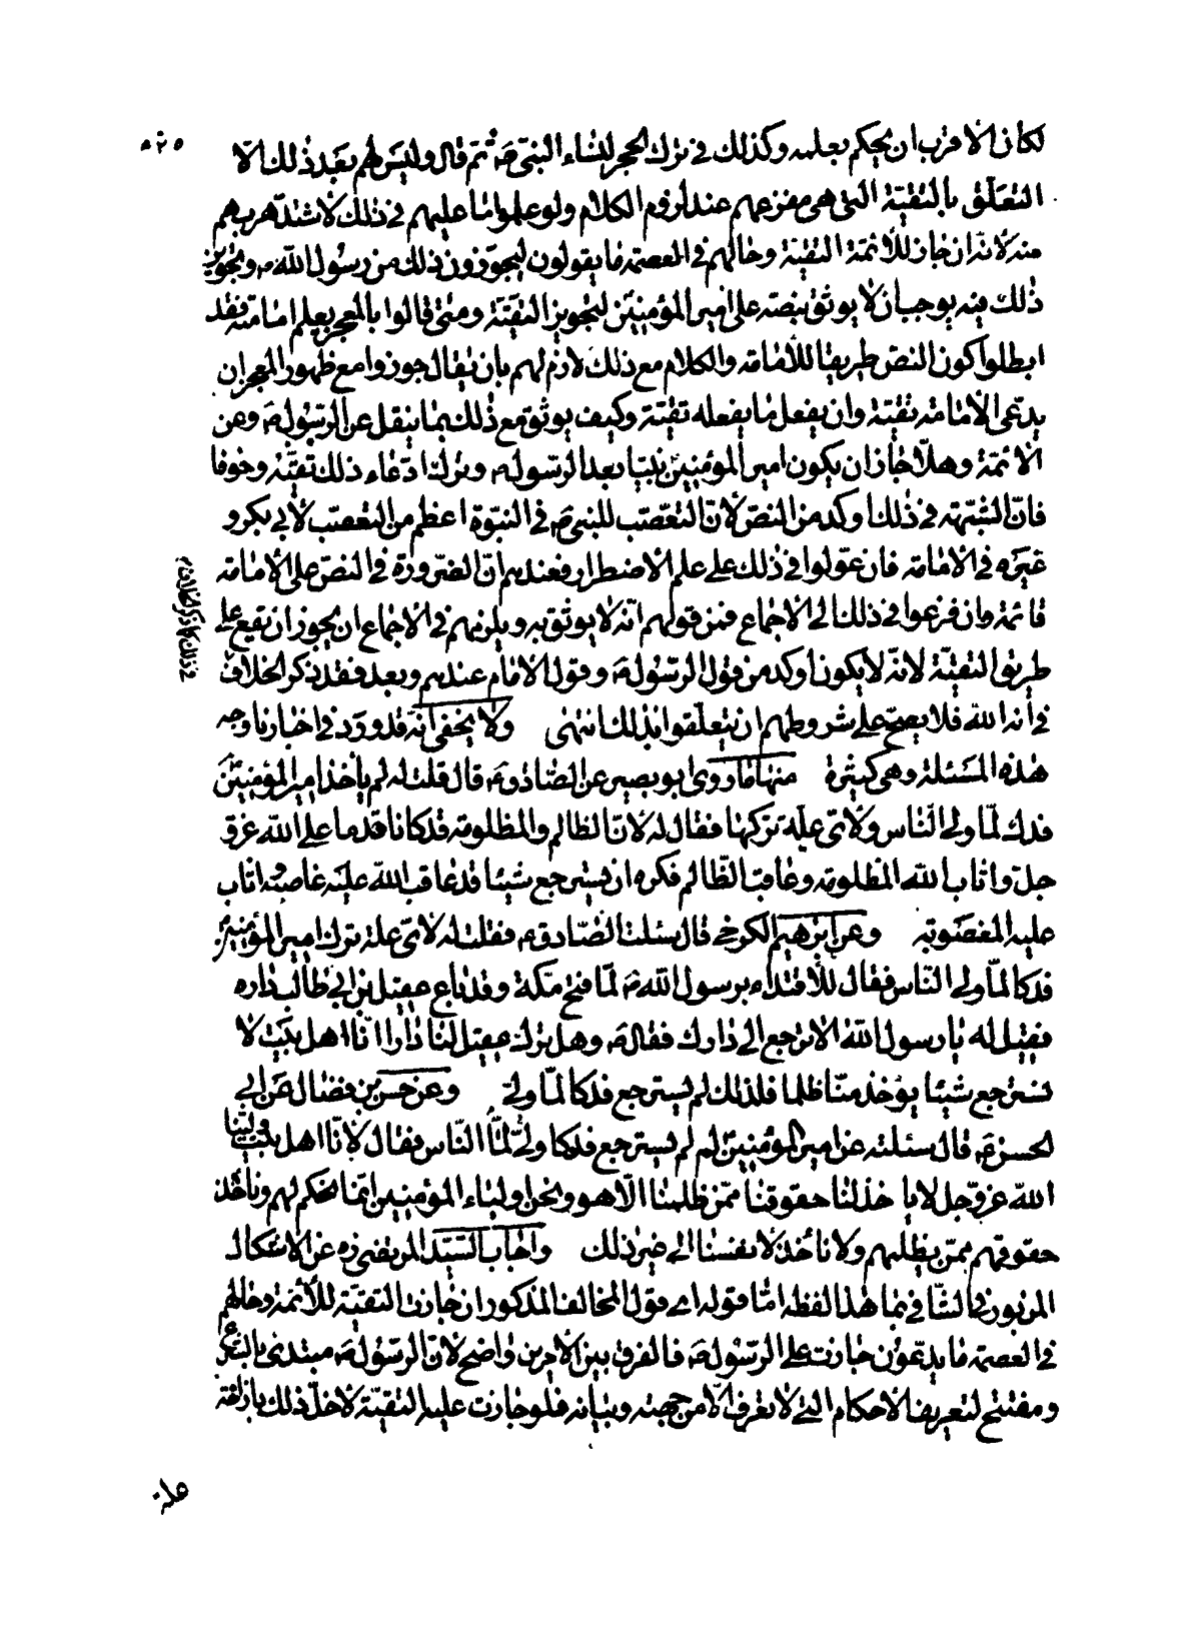 ٥٢٥
لكان الاقرب ان يحكم بعلمه وكذلك في ترك الحجر لنساء النبي ص ثم قال وليس لهم بعد ذلك الا
التعلق بالتقية التي هي مفزعهم عند لزوم الكلام ولو علموا ما عليهم في ذلك لاشتد هربهم
منه لانه ان جاز للأئمة التقية وحالهم في العصمة ما يقولون ليجوزون ذلك من رسول الله ص وتجويز
ذلك فيه يوجب ان لا يوثق بنصه على امير المؤمنين لتجويز التقية ومتى قالوا بالمعجز يعلم امامته فقد
ابطلوا كون النص طريقا للأمامة والكلام مع ذلك لازم لهم بان يقال جوزوا مع ظهور المعجز ان
يدعى الامامة تقية وان يفعل ما يفعله تقية وكيف يوثق مع ذلك بما ينقل عن الرسول ص وعن
الائمة وهلا جاز ان يكون امير المؤمنين نبيا بعد الرسول ص وترك ادعاء ذلك تقية وخوفا
فان الشبهة في ذلك اوكد من النص لان التعصب للنبي ص في النبوة اعظم من التعصب لأبي بكر و
غيره في الامامة فان عولوا في ذلك على علم الاضطرار فعندهم ان الضرورة في النص على الامامة
قائمة وان فزعوا في ذلك الى الاجماع فمن قولهم انه لا يوثق به ويلزمهم في الاجماع ان يجوز ان يقع على
طريق التقية لانه لا يكون اوكد من قول الرسول ص وقول الامام عندهم وبعد فقد ذكر الخلاف
في أنه الله فلا يصح على شروطهم ان يتعلقوا بذلك انتهى ولا يخفى انه قد ورد في اخبارنا وجه
هذه المسئلة وهي كثيرة منها ما روى ابو بصير عن الصادق ع قال قلت له لم يأخذ امير المؤمنين
فدك لما ولي الناس ولأي علة تركها فقال له لان الظالم والمظلومة قد كانا قدما على الله عز و
جل واثاب الله المظلومة وعاقب الظالم فكره ان يسترجع شيئا قد عاقب الله عليه غاصبه واثاب
عليه المغصوبة وعن ابرهيم الكرخي قال سئلت الصادق ع فقلت له لأي علة ترك امير المؤمنين
فدكا لما ولي الناس فقال للأقتداء برسول الله ص لما فتح مكة وقد باع عقيل بن ابي طالب داره
فقيل له يا رسول الله الا ترجع الى دارك فقال ص وهل ترك عقيل لنا دارا انا اهل بيت لا
نسترجع شيئا يؤخذ منا ظلما فلذلك لم يسترجع فدكا لما ولي وعن حسن بن فضال عن ابي
الحسن ع قال سئلته عن امير المؤمنين لم لم يسترجع فدكا ولي لما الناس فقال لانا اهل بيت ولينا
الله عز وجل لا يأخذ لنا حقوقنا ممن ظلمنا الا هو ونحن اولياء المؤمنين انما نحكم لهم ونأخذ
حقوقهم ممن يظلمهم ولا نأخذ لانفسنا الى غير ذلك واجاب السيد المرتضى ره عن الاشكال
المزبور في الشافي بما هذا لفظه اما قوله اي قول المخالف المذكور ان جازت التقية للأئمة وحالهم
في العصمة ما يدعون جازت على الرسول ص فالفرق بين الامرين واضح لان الرسول ص مبتدئ بالشرع
ومفتتح لتعريف الاحكام التي لا تعرف الا من جهته وبيانه فلو جازت عليه التقية لاخل ذلك بازاحة
علة